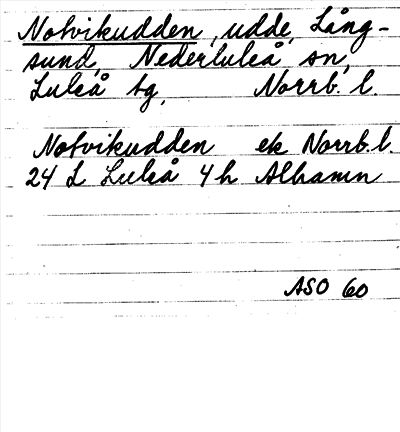 Notvikudden, udde, Lång-
sund, Nederluleå sn,
Luleå tg, Norrb. l.
Notvikudden ek Norrb. l.
24 L Luleå 4h Alhamn
ASO 60